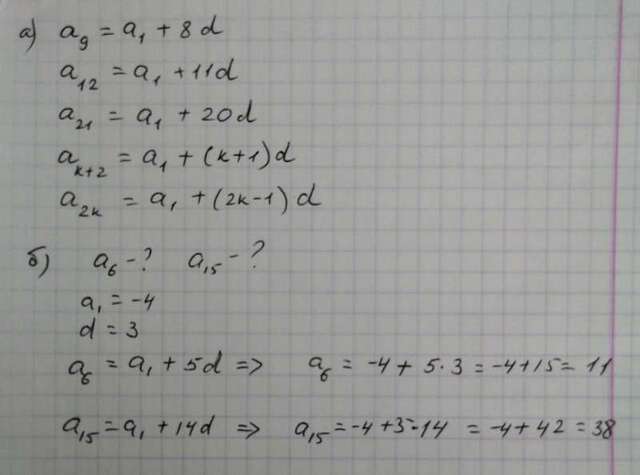 а) a₉ = a₁ + 8d
a₁₂ = a₁ + 11d
a₂₁ = a₁ + 20d
aₖ₊₂ = a₁ + (k+1)d
a₂ₖ = a₁ + (2k-1)d
б) a₆ - ? a₁₅ - ?
a₁ = -4
d = 3
a₆ = a₁ + 5d => a₆ = -4 + 5·3 = -4+15 = 11
a₁₅ = a₁ + 14d => a₁₅ = -4+3·14 = -4+42 = 38